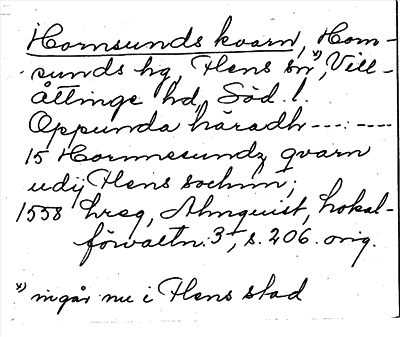 Hornsunds kvarn, Horn-
sunds hg, Flens sn x), Vill-
åttinge hd, Söd. l.
Oppunda häradh --- : ----
15 Hornnesundz qvarn
udij Flens sochnn;
1558 hreg, Almquist, Lokal-
förvaltn. 3, s. 206. orig.
x) ingår nu i Flens stad